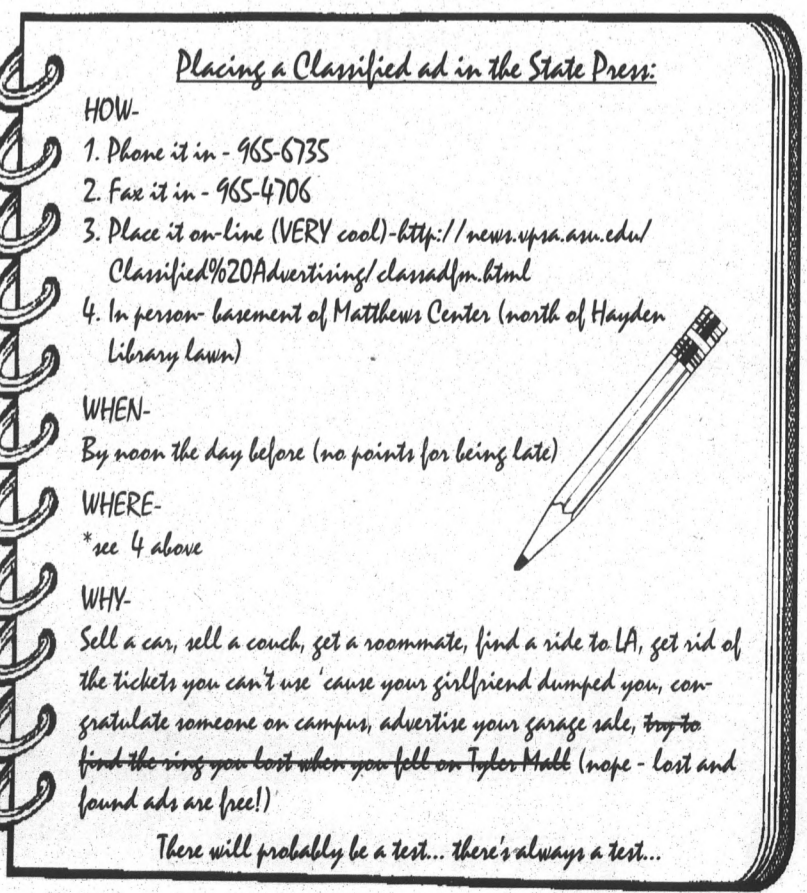 Placing a Classified ad in the State Press:
HOW-
1. Phone it in - 965-6735
2. Fax it in - 965-4706
3. Place it on-line (VERY cool)-http://news.vpsa.asu.edu/
Classified%20Advertising/classadfm.html
4. In person- basement of Matthews Center (north of Hayden
Library lawn)
WHEN-
By noon the day before (no points for being late)
WHERE-
*see 4 above
WHY-
Sell a car, sell a couch, get a roommate, find a ride to LA, get rid of
the tickets you can't use 'cause your girlfriend dumped you, con-
gratulate someone on campus, advertise your garage sale, try to
find the ring you lost when you fell on Tyler Mall (nope - lost and
found ads are free!)
There will probably be a test... there's always a test...